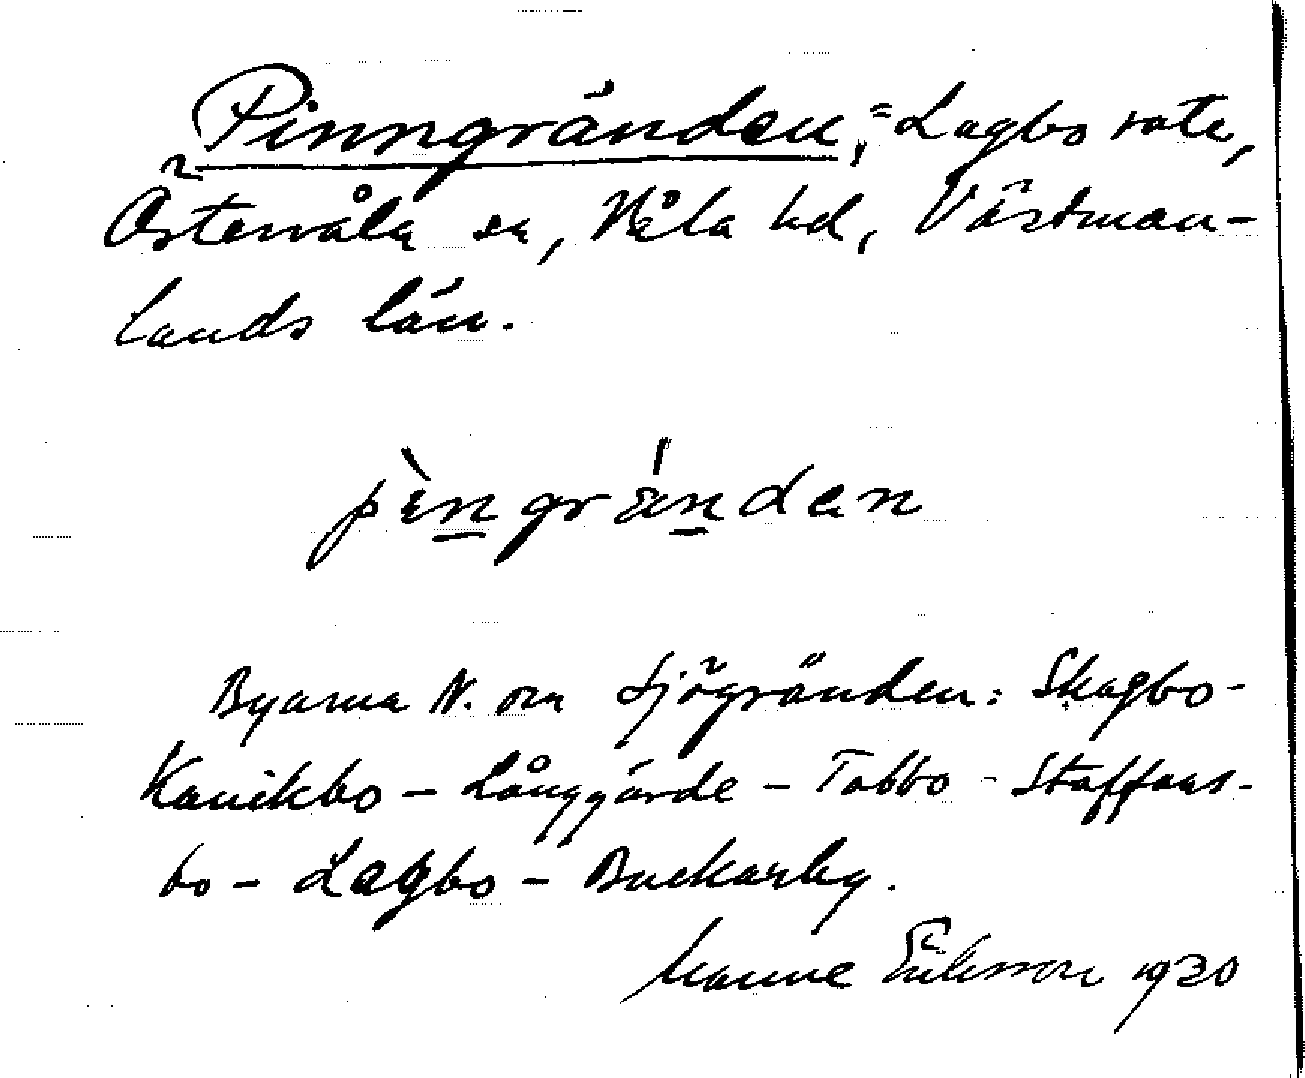 Pinngränden, = Lagbo rote,
Östervåla sn, Våla hd, Västman-
lands län.
pèngrä́ndɛn
Byarna N. om Sjögränden: Skagbo-
Kanikbo – Långgärde – Tobbo – Staffans-
bo – Lagbo – Buckarby.
Manne Eriksson 1930